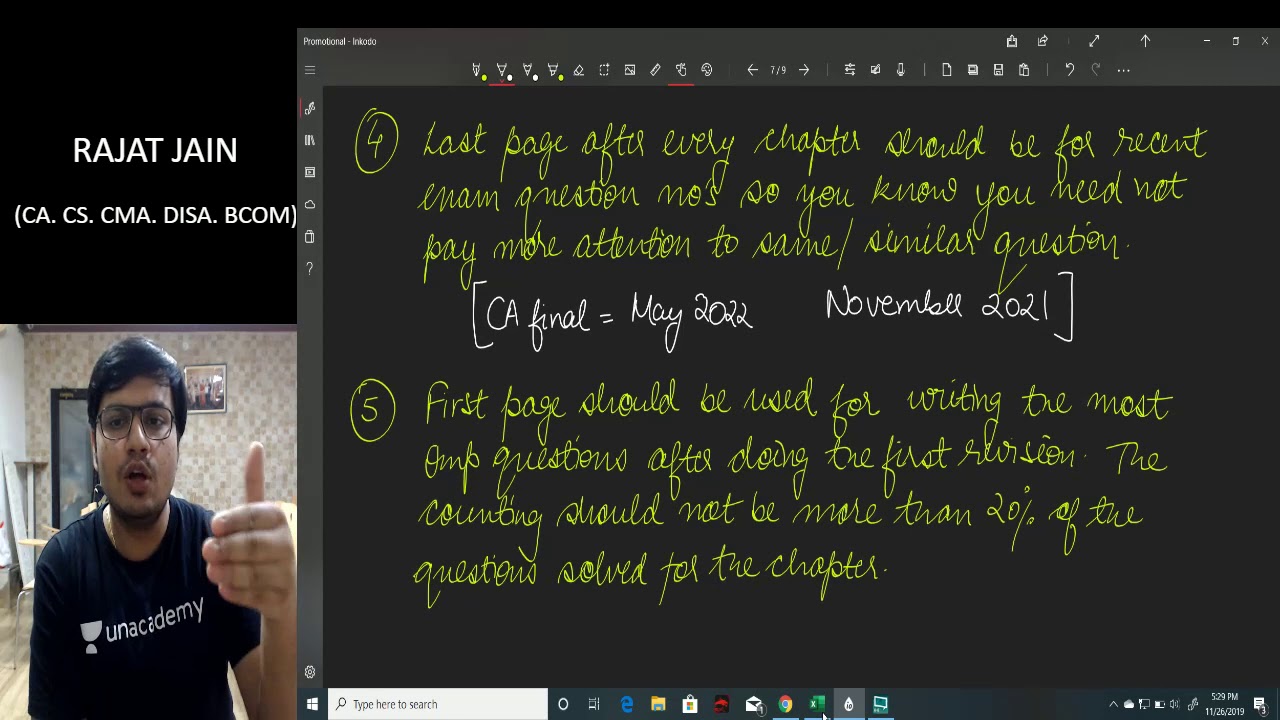 RAJAT JAIN
(CA. CS. CMA. DISA. BCOM)
unacademy
Promotional - Inkodo
7/9
④ Last page after every chapter should be for recent
exam question no's so you know you need not
pay more attention to same/similar question.
[CA final = May 2022 November 2021]
⑤ First page should be used for writing the most
imp questions after doing the first revision. The
counting should not be more than 20% of the
questions solved for the chapter.
Type here to search
5:29 PM
11/26/2019